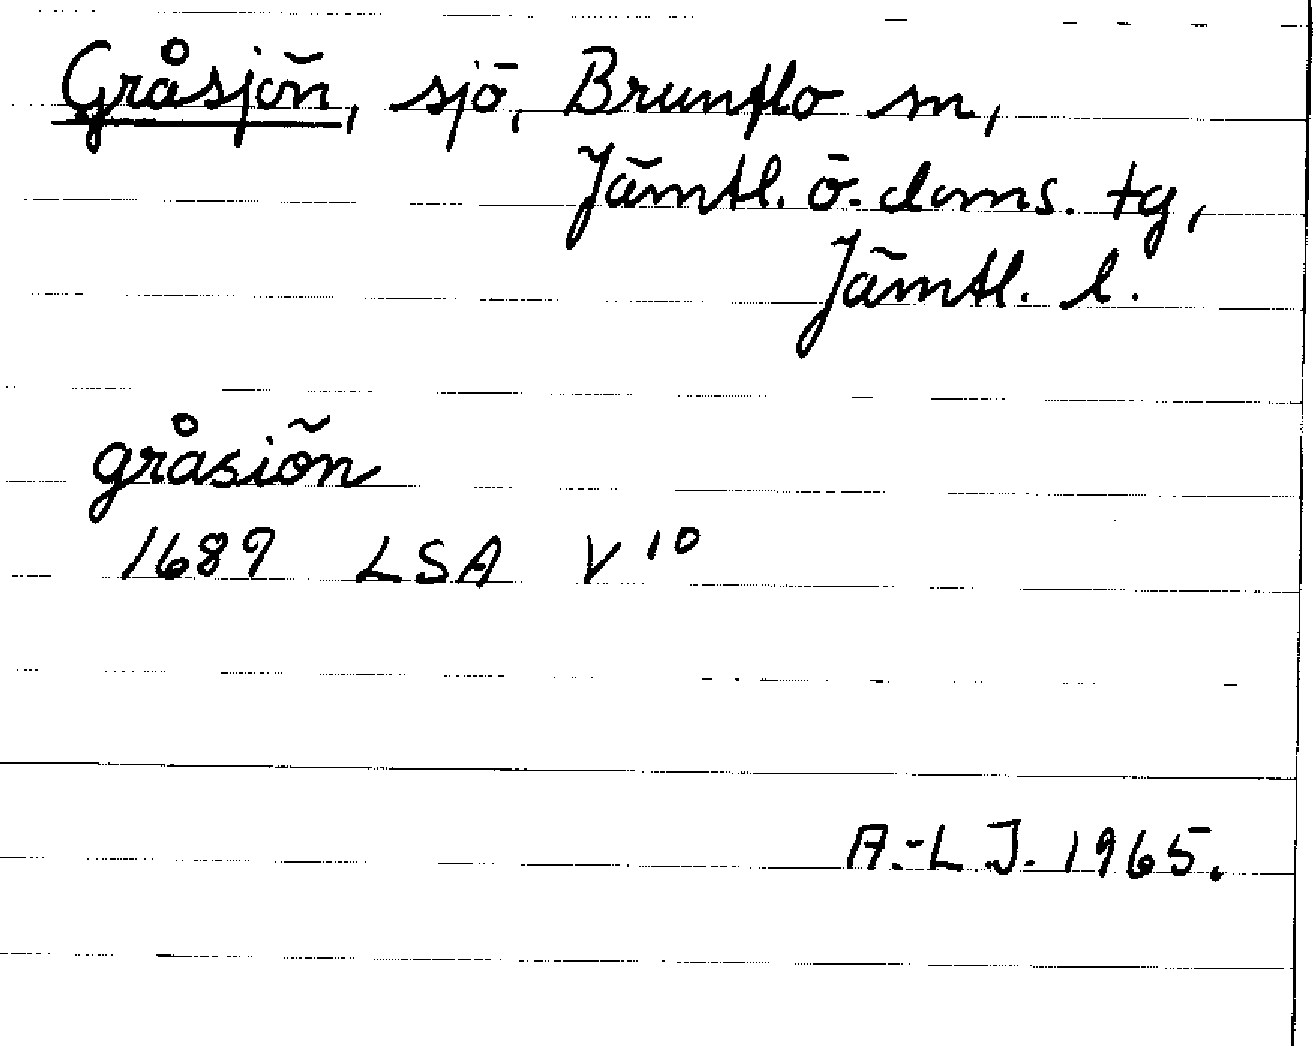 Gråsjön, sjö, Brunflo sn,
Jämtl. ö. doms. tg,
Jämtl. l.
gråsiön
1689 LSA V 10
A.-L J. 1965.